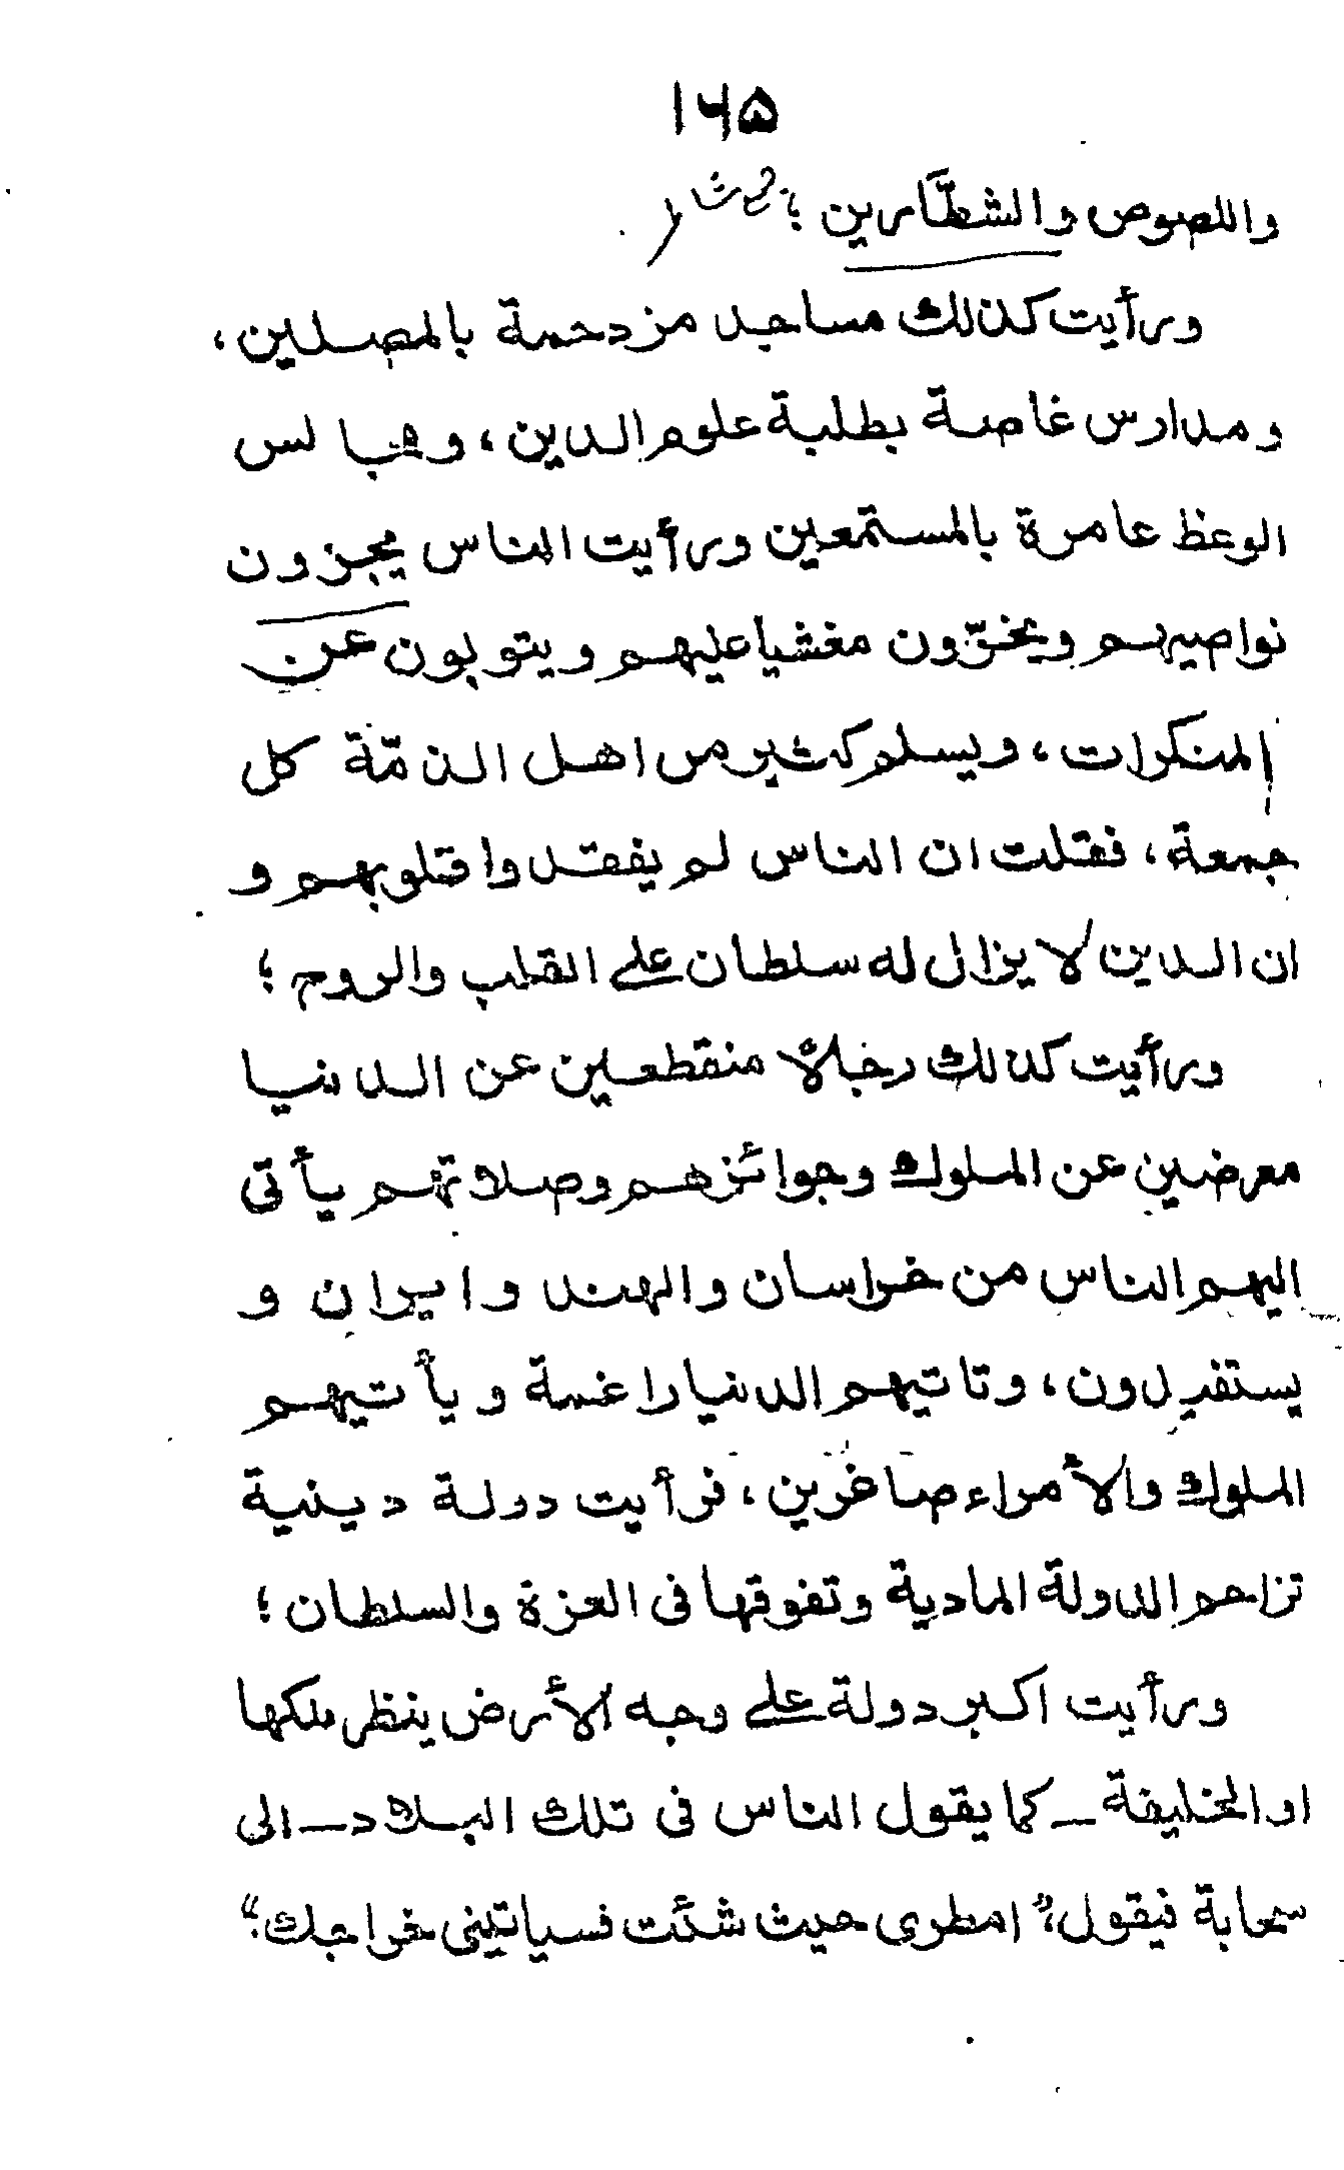 ۱۶۵
واللصوص والشطّارين ؛
ورأيت كذلك مساجد مزدحمة بالمصلين،
ومدارس غاصة بطلبة علوم الدين، ومجالس
الوعظ عامرة بالمستمعين ورأيت الناس يجزون
نواصيهم ويخرّون مغشيا عليهم ويتوبون عن
المنكرات، ويسلم كثير من اهل الذمّة كل
جمعة، فقلت ان الناس لم يفقدوا قلوبهم و
ان الدين لا يزال له سلطان على القلب والروح ؛
ورأيت كذلك رجالاً منقطعين عن الدنيا
معرضين عن الملوك وجوائزهم وصلاتهم يأتي
اليهم الناس من خراسان والهند وايران و
يستفيدون، وتاتيهم الدنيا راغمة ويأتيهم
الملوك والأمراء صاغرين، فرأيت دولة دينية
تزاحم الدولة المادية وتفوقها في العزة والسلطان ؛
ورأيت اكبر دولة على وجه الأرض ينظر ملكها
او الخليفة ــ كما يقول الناس في تلك البلاد ــ الى
سحابة فيقول: "امطرى حيث شئت فسياتيني خراجك"